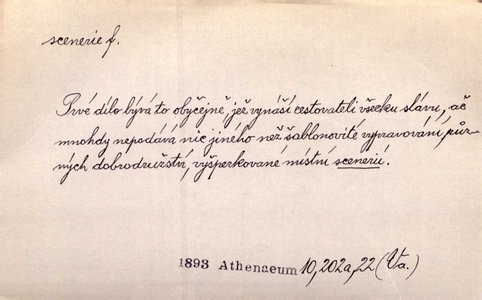 scenerie f.
Prvé dílo bývá to obyčejně, jež vynáší cestovateli všecku slávu, ač
mnohdy nepodává nic jiného než šablonovité vypravování, půr-
ných dobrodružství, vyšperkované místní scenerií.
1893 Athenaeum 10, 202a, 22 (Va.)